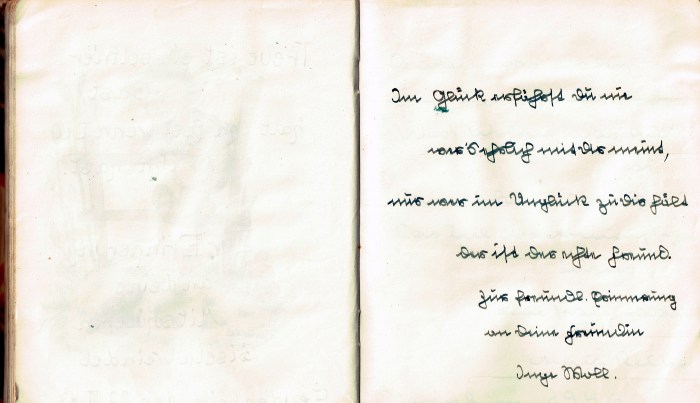 Im Glück erfährst du nie
wer's ehrlich mit dir meint,
nur wer im Unglück zu dir hält
der ist der echte Freund.
Zur freundl. Erinnerung
an deine Freundin
Inge Moll.